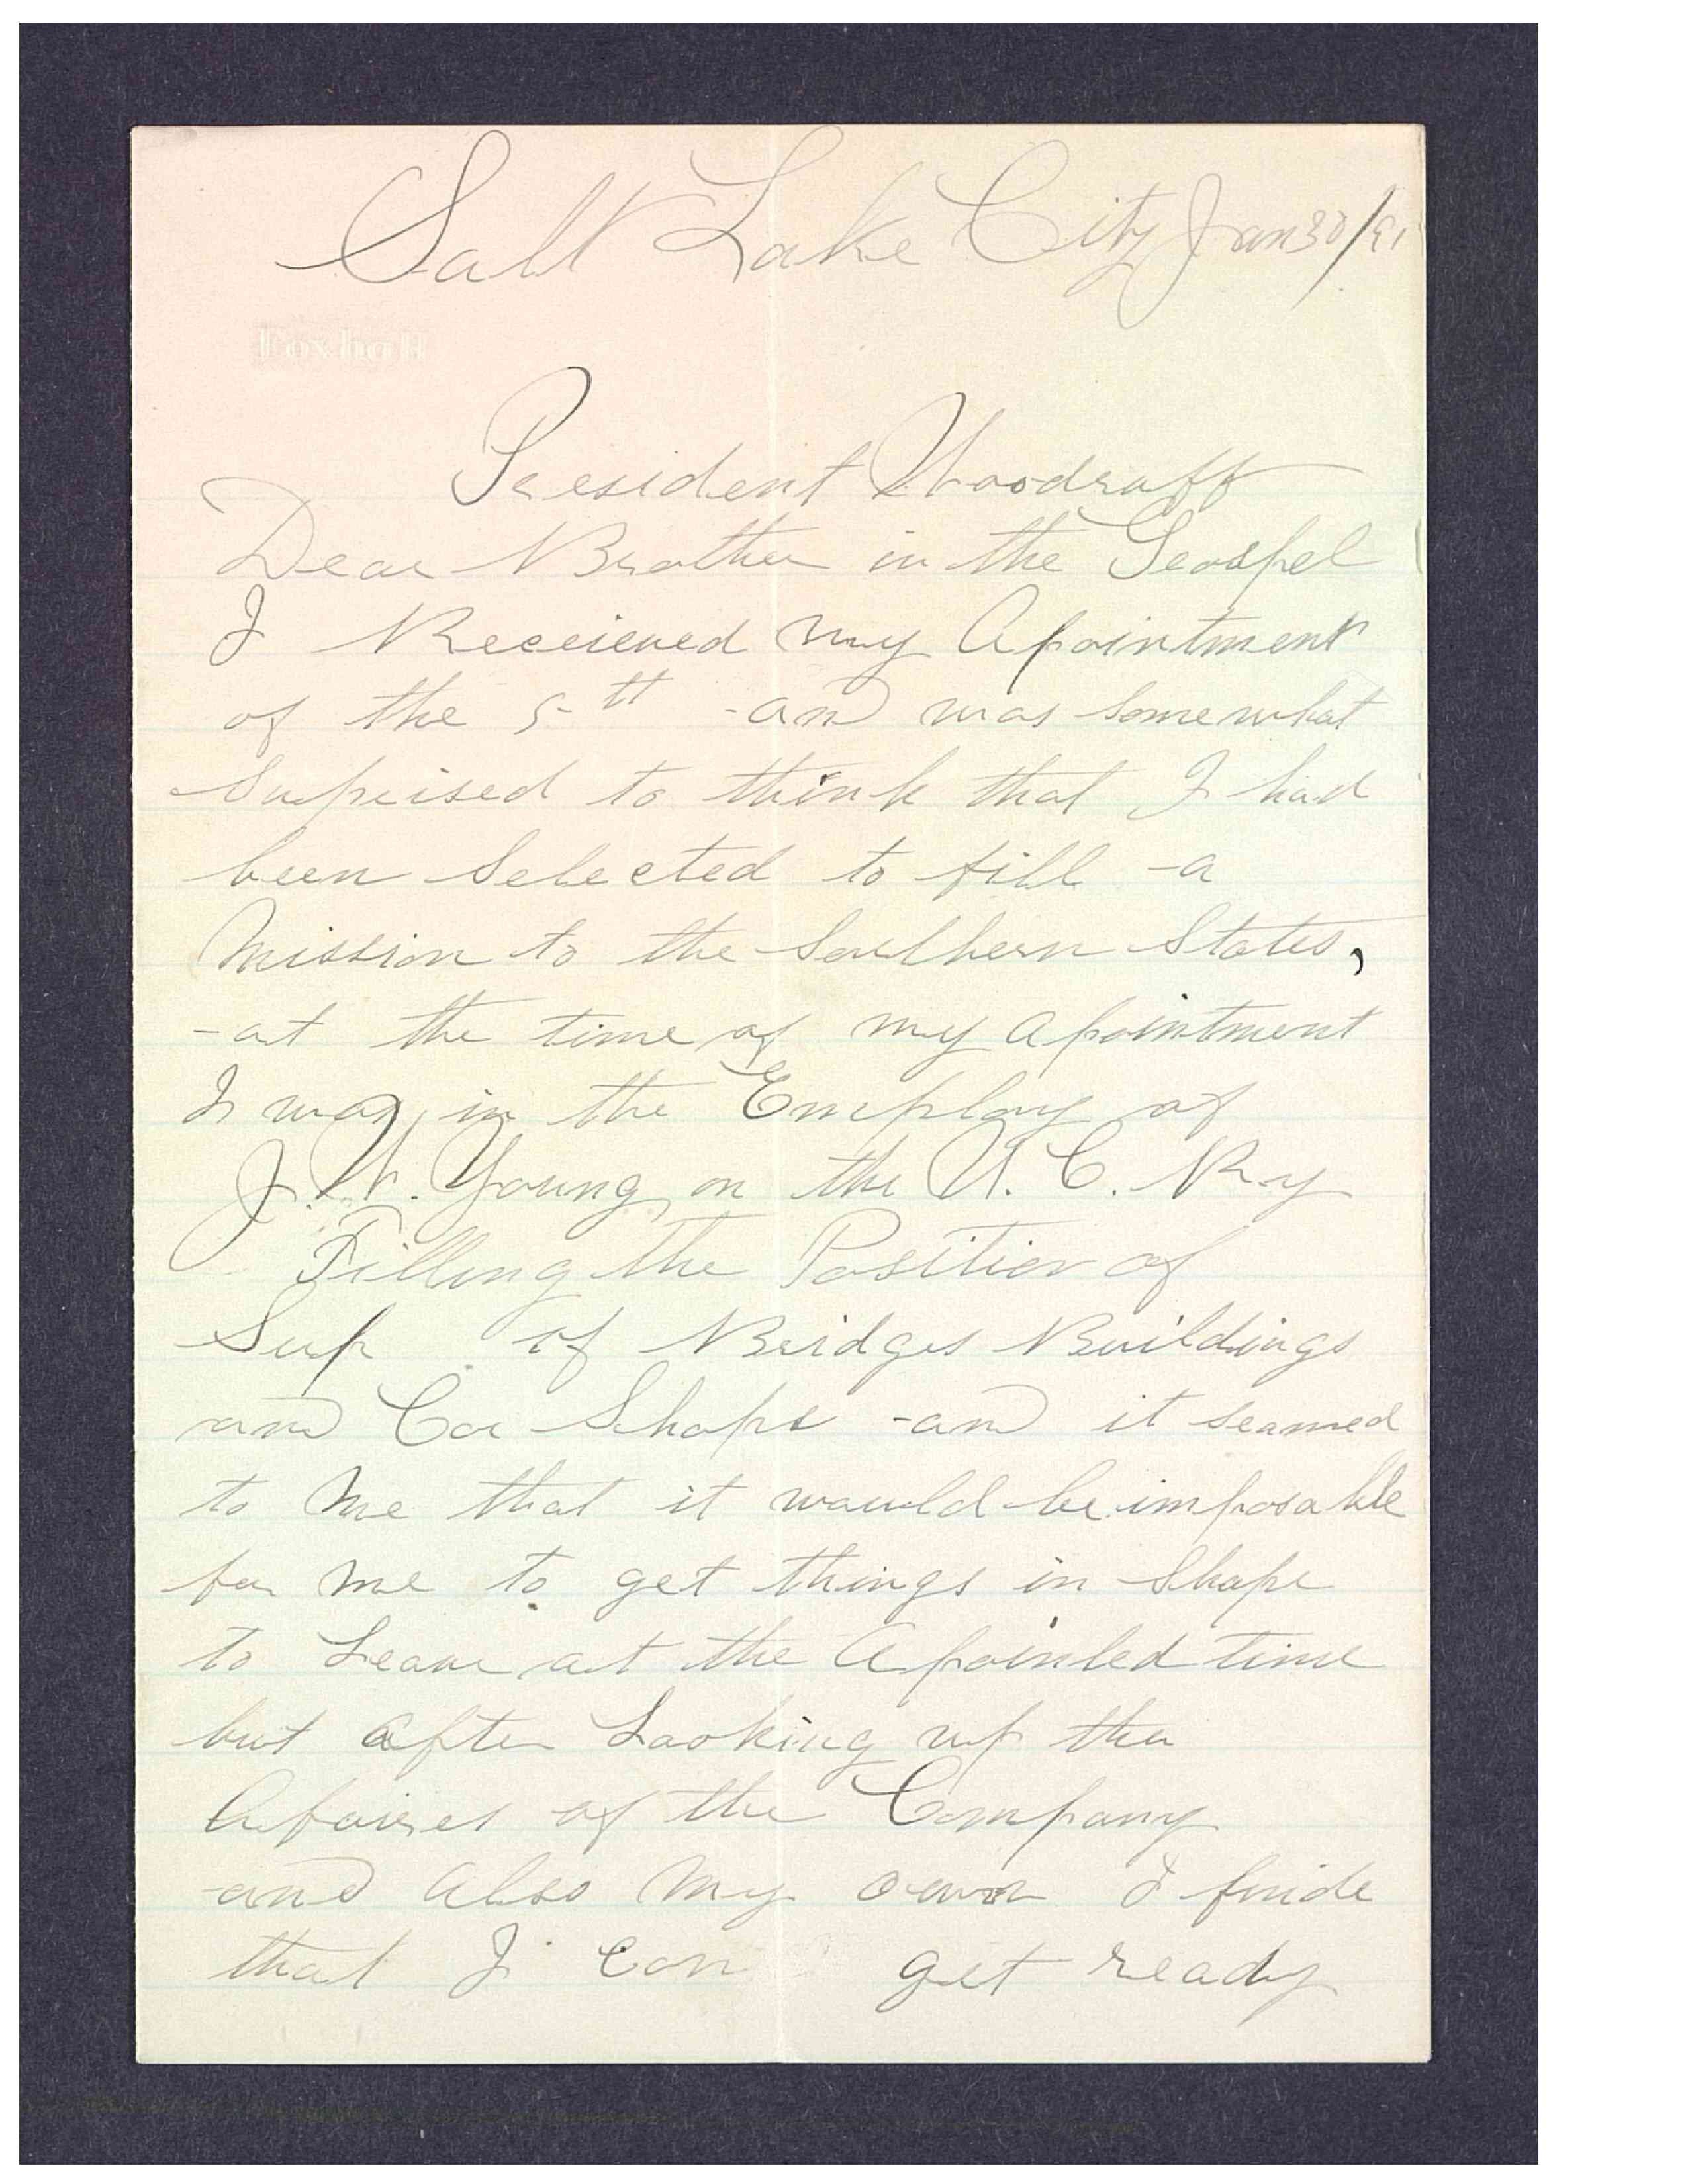 Salt Lake City Jan 30/91
Foxhall
President Woodruff
Dear Brother in the Geospel
I Receieved my Apointment
of the 5th and was somewhat
Supprised to think that I had
been Selected to fill a
Mission to the Southern States,
at the time of my apointment
I was in the Employ of
J. W. Young on the U. C. Ry
Filling the Position of
Sup of Bridges Buildings
and Car Shops and it seamed
to Me that it would be imposable
for me to get things in Shape
to Leave at the Apointed time
but after Looking up the
Afaires of the Company
and Also My own I finde
that I Can get ready